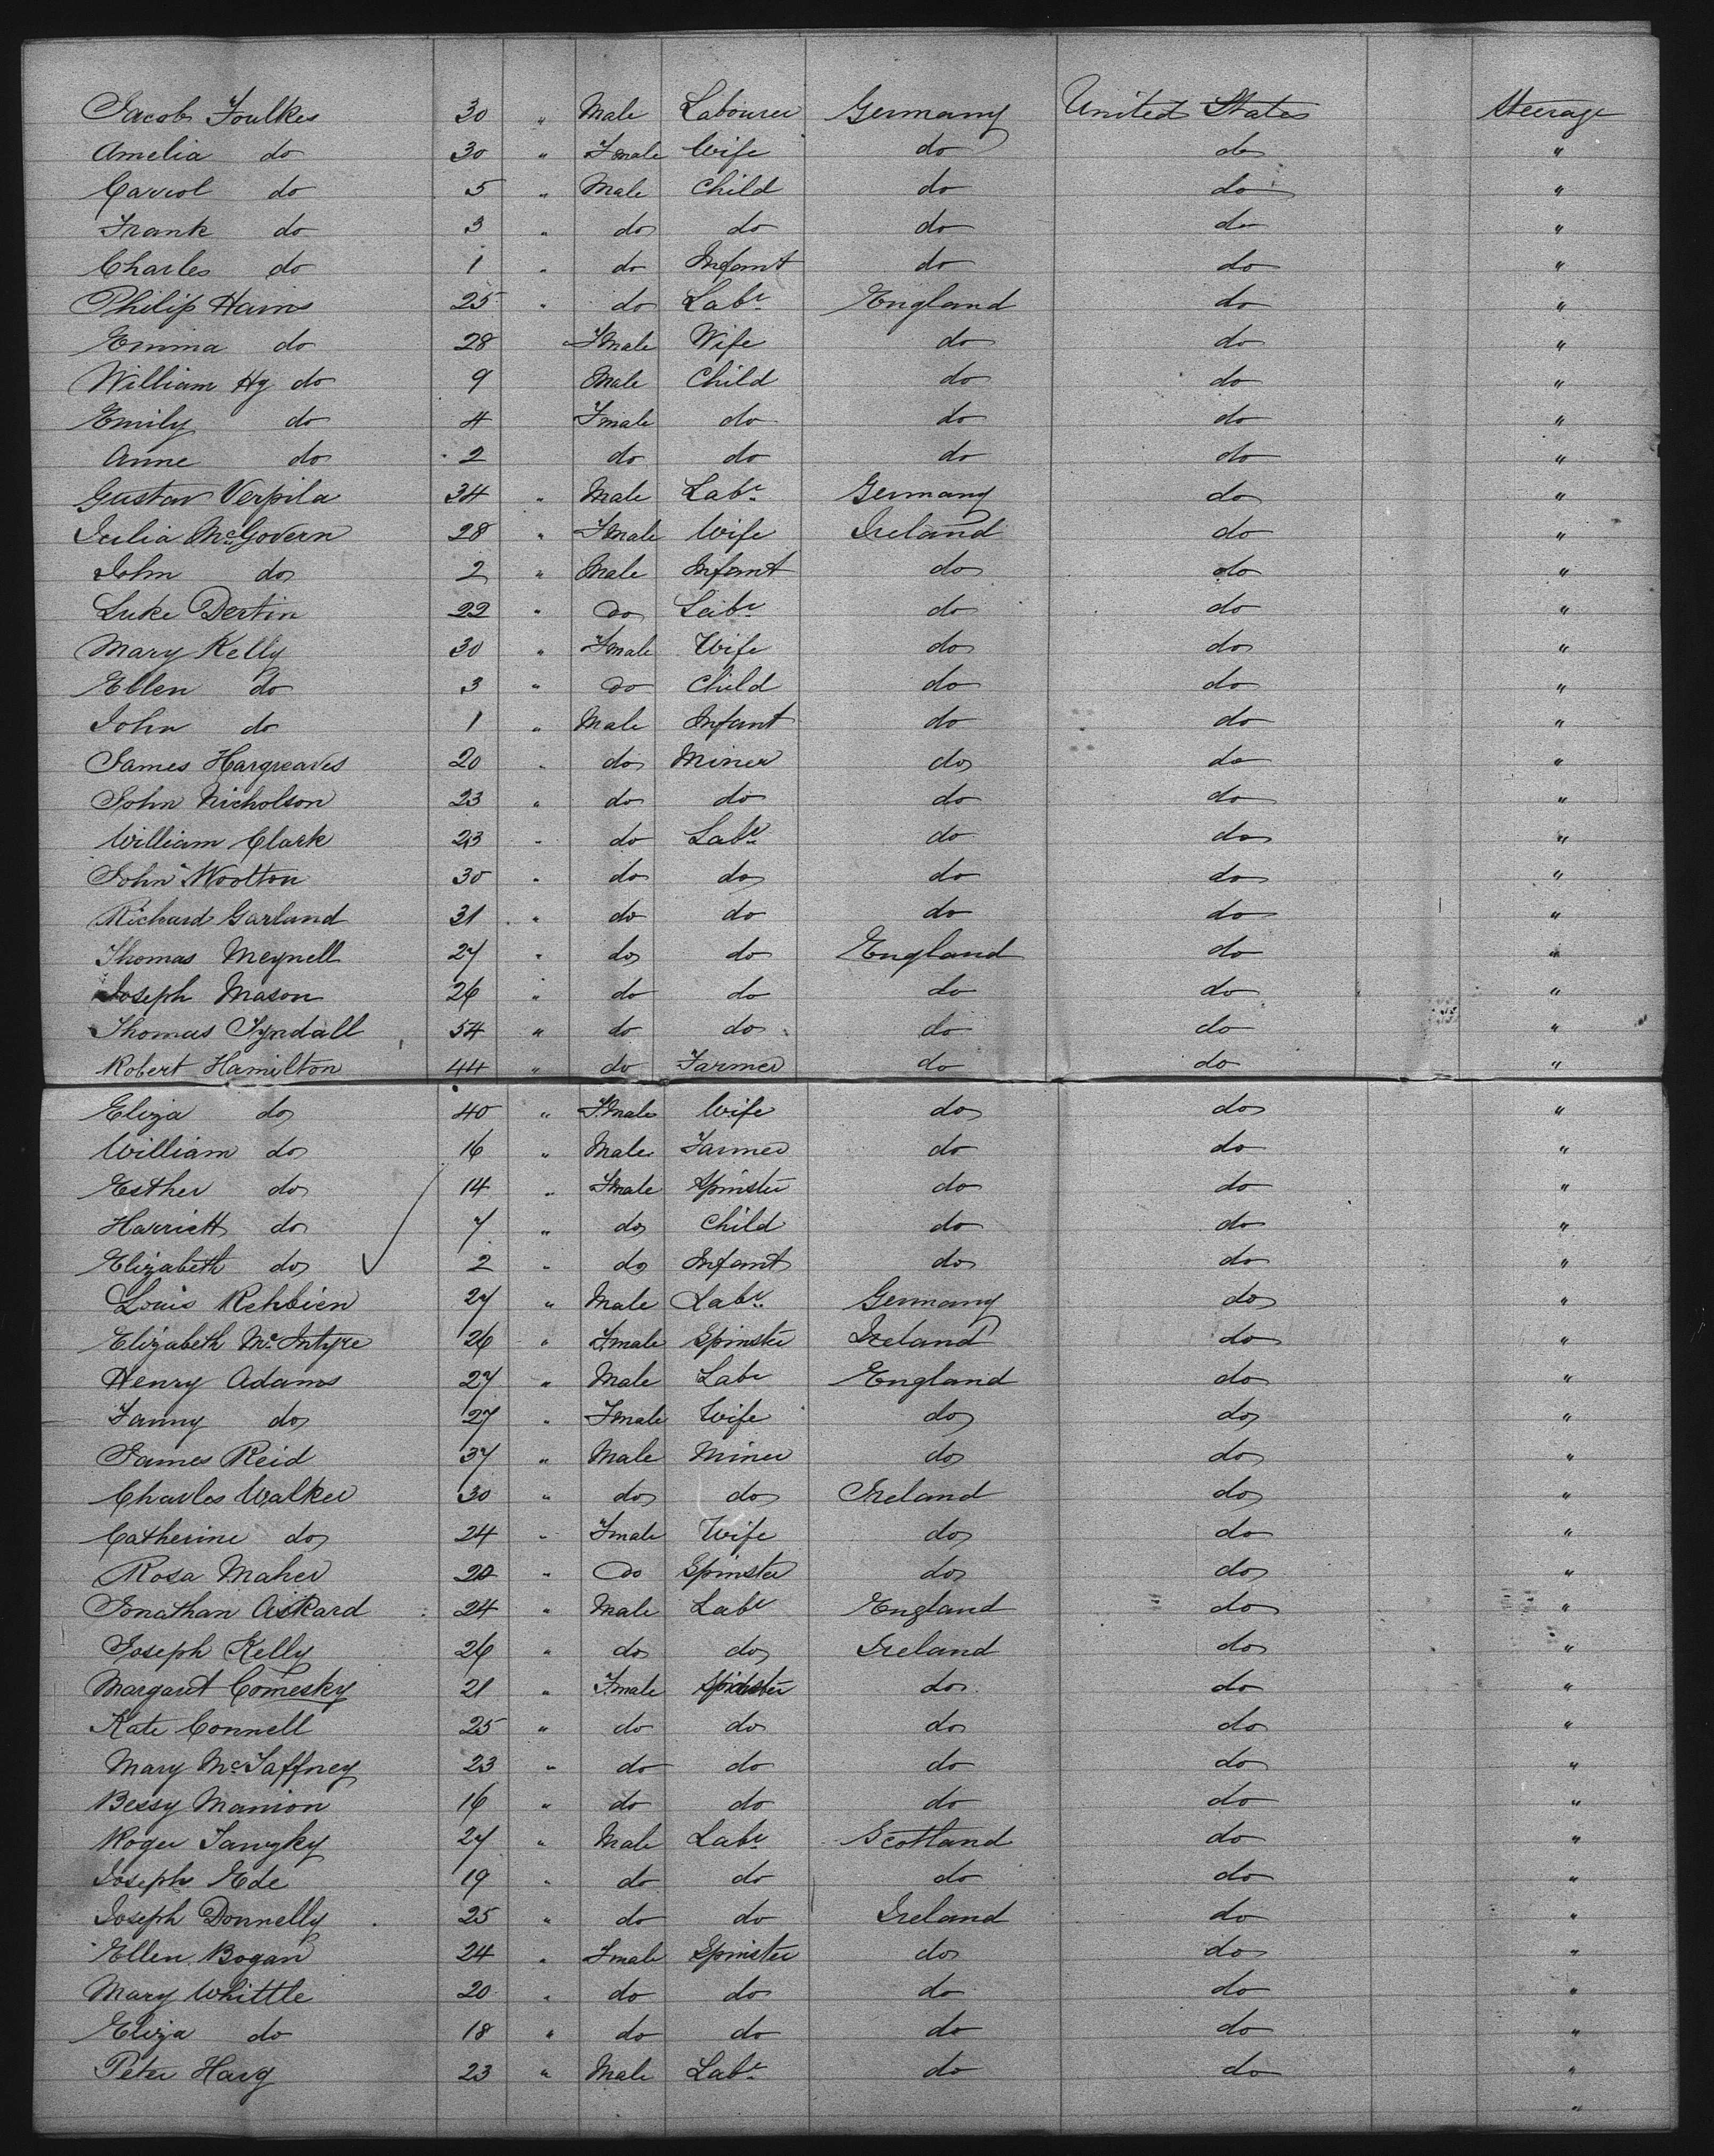 Jacob Foulkes 30 " Male Labourer Germany United States Steerage
Amelia do 30 " Fmale Wife do do "
Carrol do 5 " Male Child do do "
Frank do 3 " do do do do "
Charles do 1 " do Infant do do "
Philip Hains 25 " do Labr England do "
Emma do 28 Fmale Wife do do "
William Hy do 9 Male Child do do "
Emily do 4 Fmale do do do "
Anne do 2 do do do do "
Gustav Verpila 34 " Male Labr Germany do "
Julia McGovern 28 " Fmale Wife Ireland do "
John do 2 " Male Infant do do "
Luke Dertin 22 " do Labr do do "
Mary Kelly 30 " Fmale Wife do do "
Ellen do 3 " do Child do do "
John do 1 " Male Infant do do "
James Hargreaves 20 " do Miner do do "
John Nicholson 23 " do do do do "
William Clark 23 " do Labr do do "
John Wootton 30 " do do do do "
Richard Garland 31 " do do do do "
Thomas Meynell 27 " do do England do "
Joseph Mason 26 " do do do do "
Thomas Tyndall 54 " do do do do "
Robert Hamilton 44 " do Farmer do do "
Eliza do 40 " Fmale Wife do do "
William do 16 " Male Farmer do do "
Esther do 14 " Fmale Spinster do do "
Harriett do 7 " do Child do do "
Elizabeth do 2 " do Infant do do "
Louis Rehbien 27 " Male Labr Germany do "
Elizabeth McIntyre 26 " Fmale Spinster Ireland do "
Henry Adams 27 " Male Labr England do "
Fanny do 27 " Fmale Wife do do "
James Reid 37 " Male Miner do do "
Charles Walker 30 " do do Ireland do "
Catherine do 24 " Fmale Wife do do "
Rosa Maher 20 " do Spinster do do "
Jonathan Askard 24 " Male Labr England do "
Joseph Kelly 26 " do do Ireland do "
Margaret Comesky 21 " Fmale Spinster do do "
Kate Connell 25 " do do do do "
Mary McGaffney 23 " do do do do "
Bessy Manion 16 " do do do do "
Roger 27 " Male Labr Scotland do "
Joseph Ede 19 " do do do do "
Joseph Donnelly 25 " do do Ireland do "
Ellen Bogan 24 " Fmale Spinster do do "
Mary Whittle 20 " do do do do "
Eliza do 18 " do do do do "
Peter Harg 23 " Male Labr do do "
"